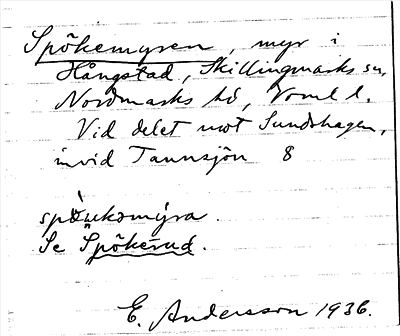 Spökemyren, myr i
Hångstad, Skillingmarks sn,
Nordmarks hd, Vrml l.
Vid delet mot Sundshagen,
invid Tannsjön 8
Se Spökerud.
E. Andersson 1936.